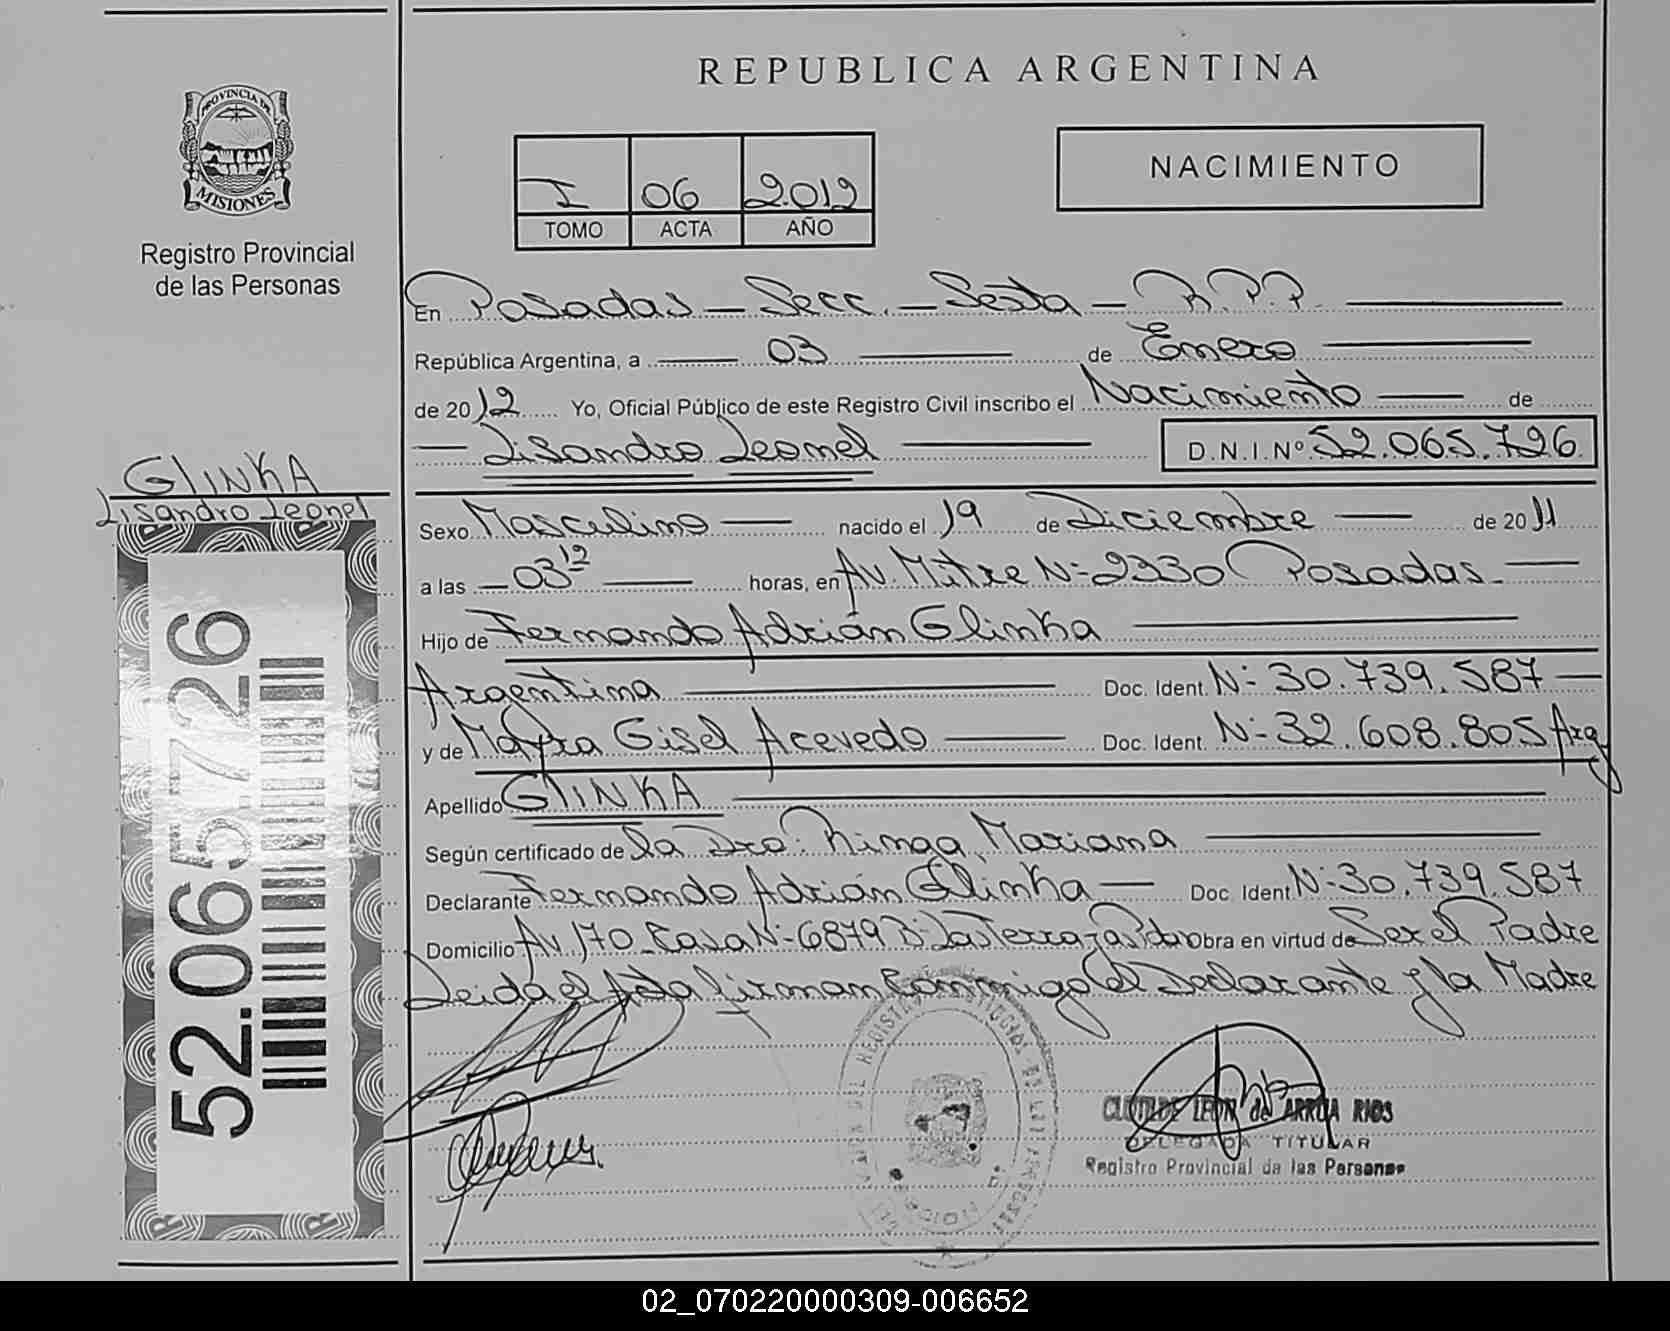 REPUBLICA ARGENTINA
PROVINCIA DE MISIONES
Registro Provincial
de las Personas
I 06 2.012
TOMO ACTA AÑO
NACIMIENTO
En Posadas - Secc. - Sexta - R.P.P.
República Argentina, a 03 de Enero
de 2012 Yo, Oficial Público de este Registro Civil inscribo el Nacimiento de
Lisandro Leonel D.N.I.Nº 52.065.726
GLINKA
Lisandro Leonel
52.065.726
Sexo Masculino nacido el 19 de Diciembre de 2011
a las 03 12 horas, en Av. Mitre Nº 2330 Posadas.
Hijo de Fernando Adrián Glinka
Argentina Doc. Ident. Nº 30.739.587
y de Mayra Gisel Acevedo Doc. Ident. Nº 32.608.805 Arg
Apellido GLINKA
Según certificado de la Dra. Ringa, Mariana
Declarante Fernando Adrián Glinka Doc. Ident Nº 30.739.587
Domicilio Av. 170 Casa Nº 6879 Bº Las Terrazas Pdas obra en virtud de Ser el Padre
Leida el Acta firman conmigo el Declarante y la Madre
CLOTILDE LEON de ARRUA RIOS
DELEGADA TITULAR
Registro Provincial de las Personas
02_070220000309-006652